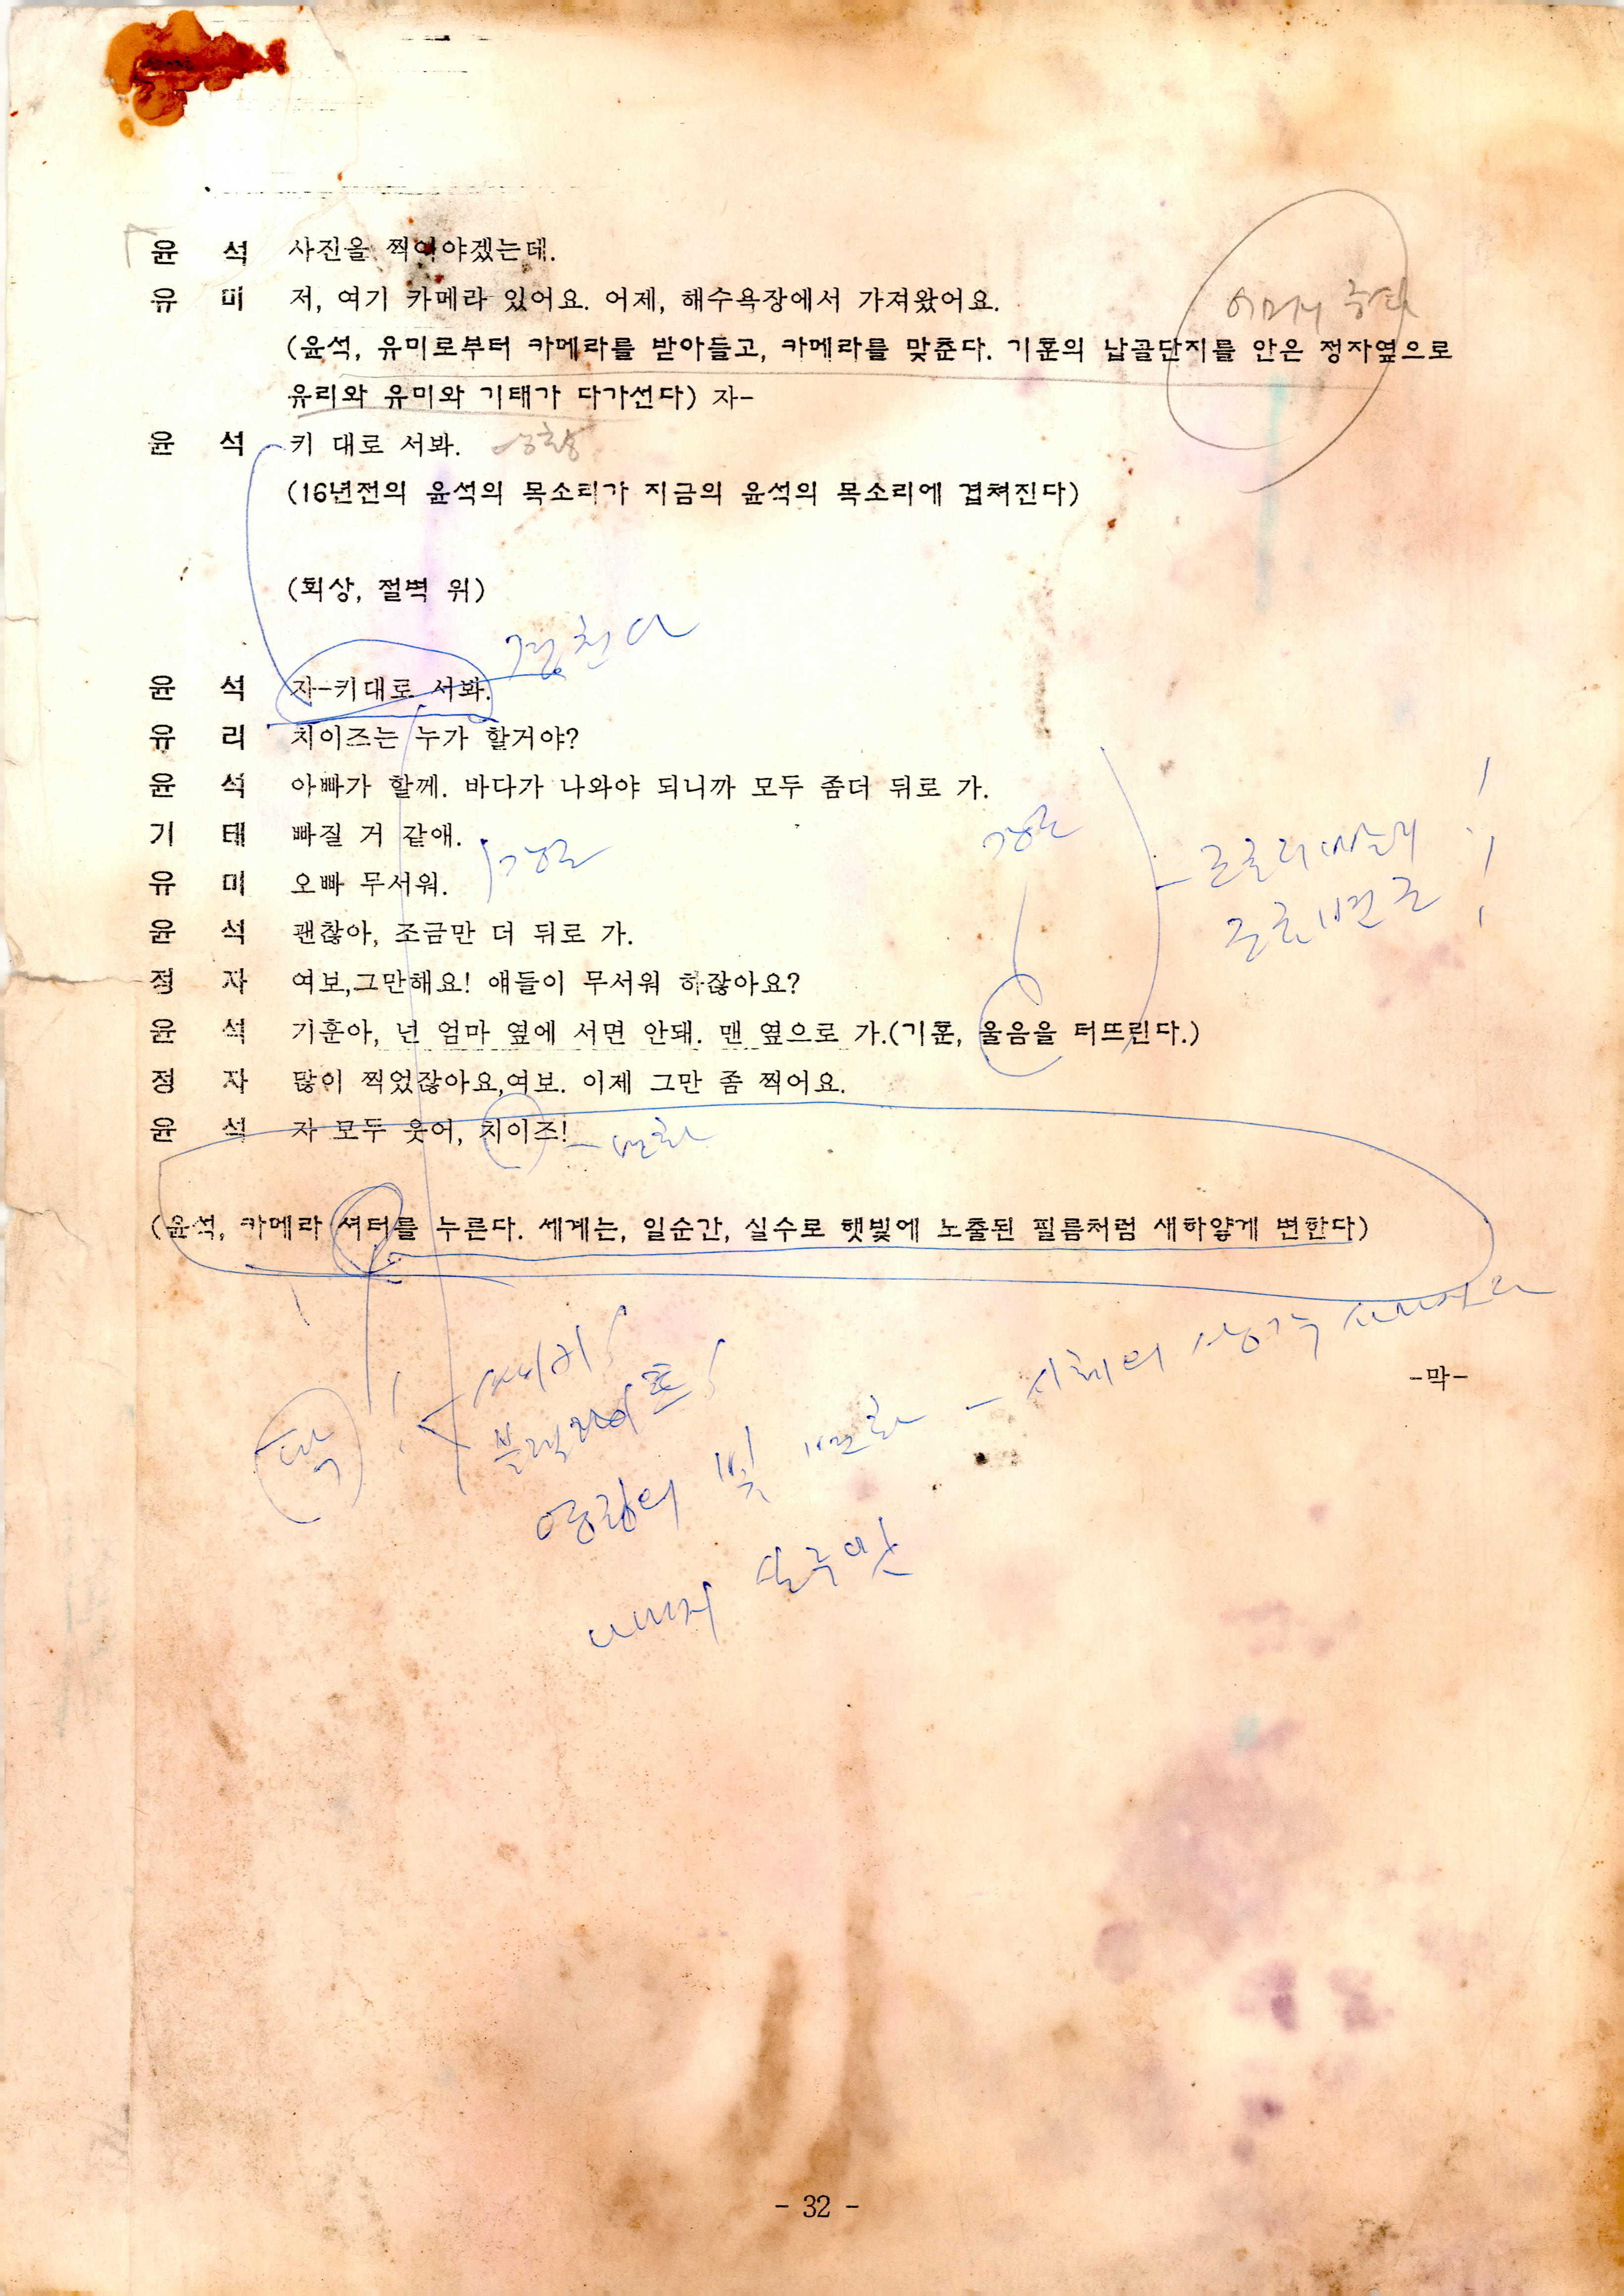 윤 석 사진을 찍어야겠는데.
유 미 저, 여기 카메라 있어요. 어제, 해수욕장에서 가져왔어요.
(윤석, 유미로부터 카메라를 받아들고, 카메라를 맞춘다. 기훈의 납골단지를 안은 정자옆으로
유리와 유미와 기태가 다가선다) 자-
윤 석 키 대로 서봐.
(16년전의 윤석의 목소리가 지금의 윤석의 목소리에 겹쳐진다)
(회상, 절벽 위)
겹친다
윤 석 자-키대로 서봐.
유 리 치이즈는 누가 할거야?
윤 석 아빠가 할께. 바다가 나와야 되니까 모두 좀더 뒤로 가.
기 태 빠질 거 같애.
유 미 오빠 무서워.
강조
강조
윤 석 괜찮아, 조금만 더 뒤로 가.
정 자 여보,그만해요! 얘들이 무서워 하잖아요?
윤 석 기훈아, 넌 엄마 옆에 서면 안돼. 맨 옆으로 가.(기훈, 울음을 터뜨린다.)
정 자 많이 찍었잖아요,여보. 이제 그만 좀 찍어요.
윤 석 자 모두 웃어, 치이즈!
변화
(윤석, 카메라 셔터를 누른다. 세계는, 일순간, 실수로 햇빛에 노출된 필름처럼 새하얗게 변한다)
-막-
딱
블랙라이트!
영광의 빛 변화 - 시체의 생각
- 32 -